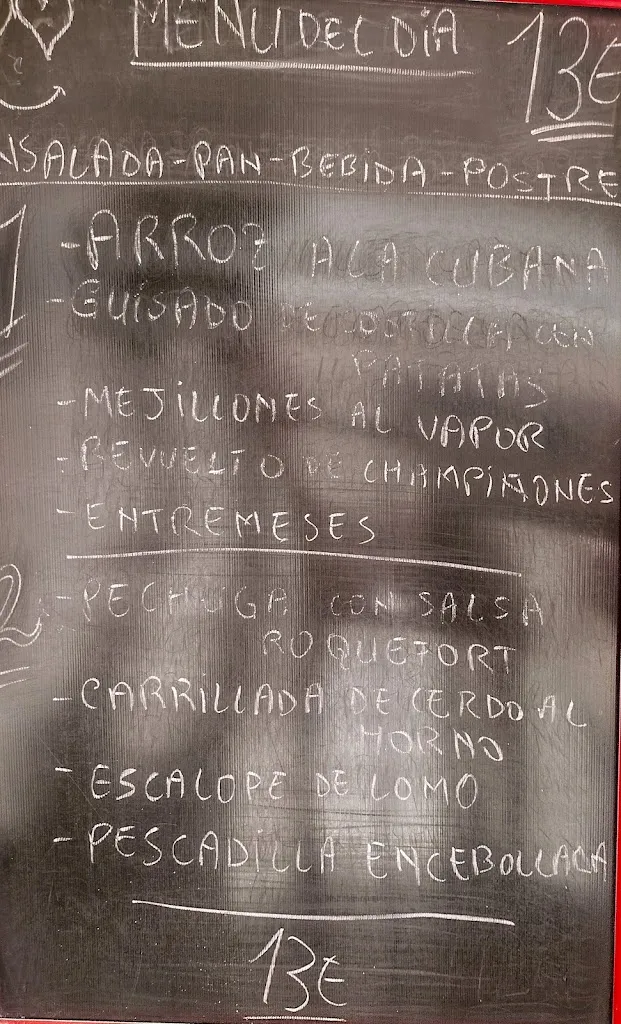 MENU DEL DÍA 13€
NSALADA-PAN-BEBIDA-POSTRE
1 -ARROZ A LA CUBANA
-GUISADO DE CON
PATATAS
-MEJILLONES AL VAPOR
-REVUELTO DE CHAMPIÑONES
-ENTREMESES
2 -PECHUGA CON SALSA
ROQUEFORT
-CARRILLADA DE CERDO AL
HORNO
-ESCALOPE DE LOMO
-PESCADILLA ENCEBOLLADA
13€